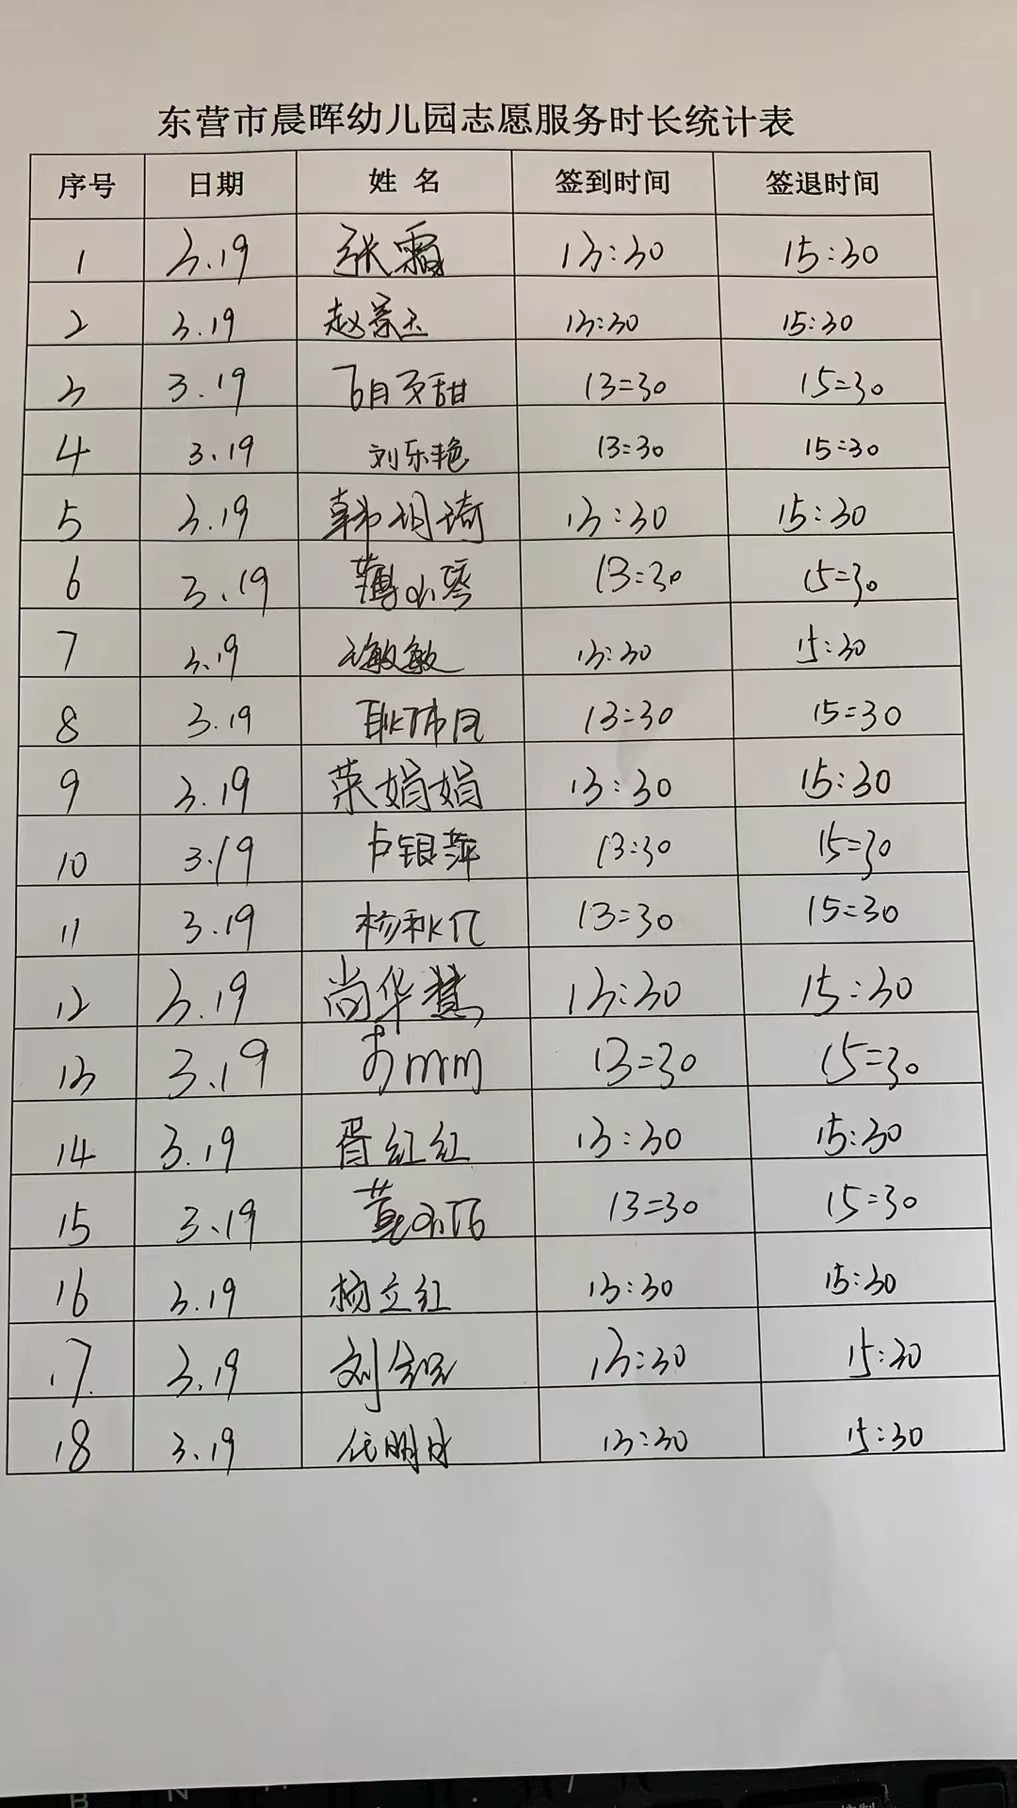 东营市晨晖幼儿园志愿服务时长统计表
序号 日期 姓 名 签到时间 签退时间
1 3.19 张霜 13:30 15:30
2 3.19 赵景玉 13:30 15:30
3 3.19 13=30 15=30
4 3.19 刘乐艳 13=30 15=30
5 3.19 韩明琦 13:30 15:30
6 3.19 薄小琴 13=30 15=30
7 3.19 敏敏 13:30 15:30
8 3.19 13=30 15=30
9 3.19 娟娟 13:30 15:30
10 3.19 卢银萍 13:30 15=30
11 3.19 杨秋 13=30 15=30
12 3.19 尚华慧 13:30 15:30
13 3.19 13=30 15=30
14 3.19 胥红红 13:30 15:30
15 3.19 13=30 15=30
16 3.19 杨立红 13:30 15:30
17 3.19 刘 13:30 15:30
18 3.19 任明月 13:30 15:30